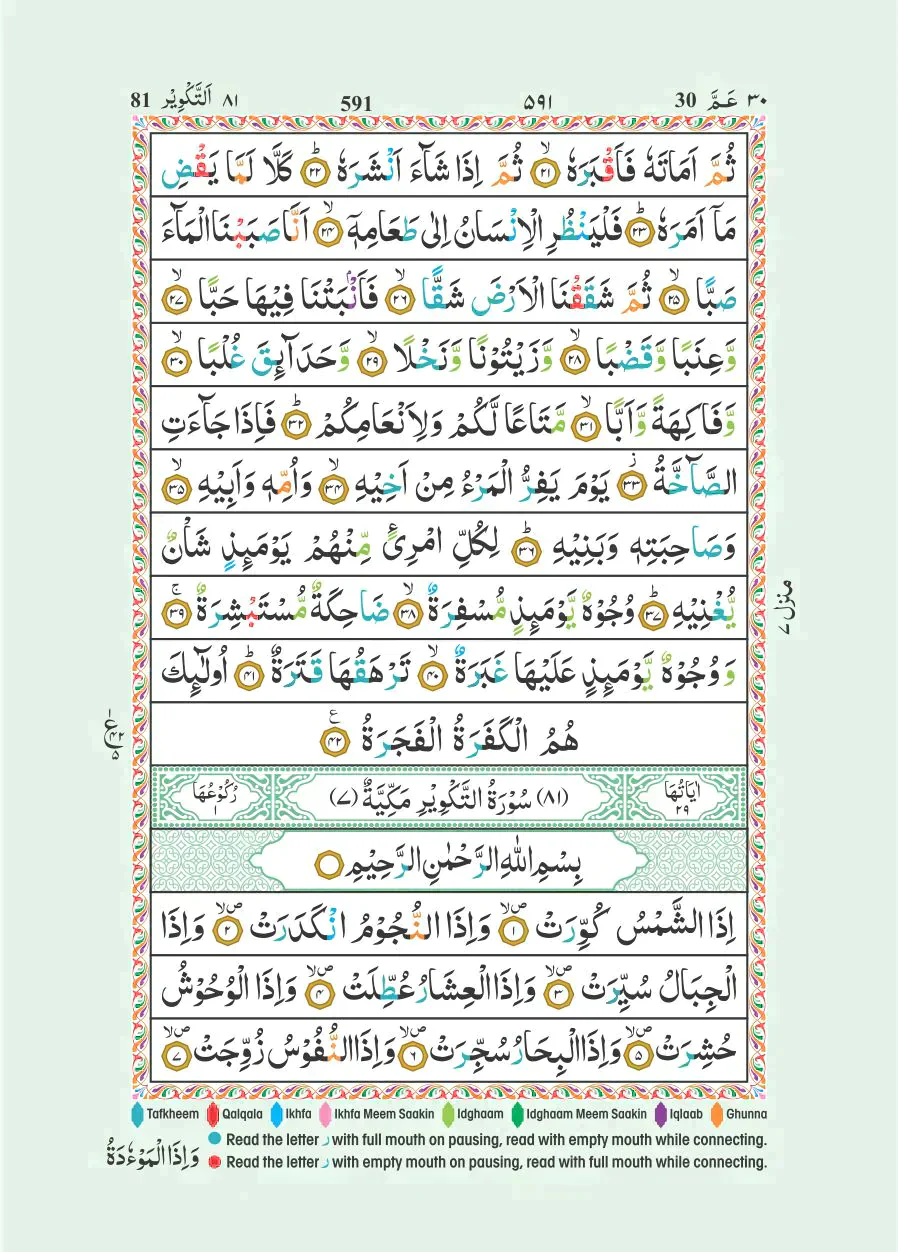 81 اَلتَّكْوِيْر ٨١ 591 ٥٩١ 30 عَـمَّ ٣٠
ثُمَّ اَمَاتَهٗ فَاَقْبَرَهٗ ۙ‏﴿۲۱﴾ ثُمَّ اِذَا شَآءَ اَنْشَرَهٗ ؕ‏﴿۲۲﴾ كَلَّا لَمَّا يَقْضِ
مَاۤ اَمَرَهٗ ؕ‏﴿۲۳﴾ فَلْيَنْظُرِ الْاِنْسَانُ اِلٰى طَعَامِهٖۤ ۙ‏﴿۲۴﴾ اَنَّا صَبَبْنَا الْمَآءَ
صَبًّا ۙ‏﴿۲۵﴾ ثُمَّ شَقَقْنَا الْاَرْضَ شَقًّا ۙ‏﴿۲۶﴾ فَاَنْۢبَتْنَا فِيْهَا حَبًّا ۙ‏﴿۲۷﴾
وَّعِنَبًا وَّقَضْبًا ۙ‏﴿۲۸﴾ وَّزَيْتُوْنًا وَّنَخْلًا ۙ‏﴿۲۹﴾ وَّحَدَآئِقَ غُلْبًا ۙ‏﴿۳۰﴾
وَّفَاكِهَةً وَّاَبًّا ۙ‏﴿۳۱﴾ مَّتَاعًا لَّكُمْ وَلِاَنْعَامِكُمْ ؕ‏﴿۳۲﴾ فَاِذَا جَآءَتِ
الصَّآخَّةُ ؗ‏﴿۳۳﴾ يَوْمَ يَفِرُّ الْمَرْءُ مِنْ اَخِيْهِ ۙ‏﴿۳۴﴾ وَاُمِّهٖ وَاَبِيْهِ ۙ‏﴿۳۵﴾
وَصَاحِبَتِهٖ وَبَنِيْهِ ؕ‏﴿۳۶﴾ لِكُلِّ امْرِئٍ مِّنْهُمْ يَوْمَئِذٍ شَاْنٌ
يُّغْنِيْهِ ؕ‏﴿۳۷﴾ وُجُوْهٌ يَّوْمَئِذٍ مُّسْفِرَةٌ ۙ‏﴿۳۸﴾ ضَاحِكَةٌ مُّسْتَبْشِرَةٌ ۚ‏﴿۳۹﴾
وَوُجُوْهٌ يَّوْمَئِذٍ عَلَيْهَا غَبَرَةٌ ۙ‏﴿۴۰﴾ تَرْهَقُهَا قَتَرَةٌ ؕ‏﴿۴۱﴾ اُولٰٓئِكَ
هُمُ الْكَفَرَةُ الْفَجَرَةُ ﴿۴۲﴾ ع
منزل ٧
ع ۴۲ ٥
اٰيَاتُهَا ٢٩ (٨١) سُوْرَةُ التَّكْوِيْرِ مَكِّيَّةٌ (٧) رُكُوْعُهَا ١
بِسْمِ اللّٰهِ الرَّحْمٰنِ الرَّحِيْمِ
اِذَا الشَّمْسُ كُوِّرَتْ ۙ ص‏﴿۱﴾ وَاِذَا النُّجُوْمُ انْكَدَرَتْ ۙ ص‏﴿۲﴾ وَاِذَا
الْجِبَالُ سُيِّرَتْ ۙ ص‏﴿۳﴾ وَاِذَا الْعِشَارُ عُطِّلَتْ ۙ ص‏﴿۴﴾ وَاِذَا الْوُحُوْشُ
حُشِرَتْ ۙ ص‏﴿۵﴾ وَاِذَا الْبِحَارُ سُجِّرَتْ ۙ ص‏﴿۶﴾ وَاِذَا النُّفُوْسُ زُوِّجَتْ ۙ ص‏﴿۷﴾
Tafkheem Qalqala Ikhfa Ikhfa Meem Saakin Idghaam Idghaam Meem Saakin Iqlaab Ghunna
Read the letter ر with full mouth on pausing, read with empty mouth while connecting.
Read the letter ر with empty mouth on pausing, read with full mouth while connecting.
وَاِذَا الْمَوْءٗدَةُ